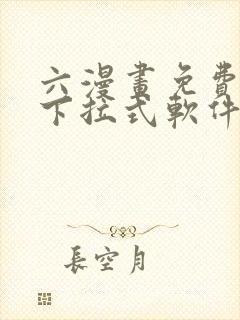 六漫畫免費
下拉式軟件
長空月